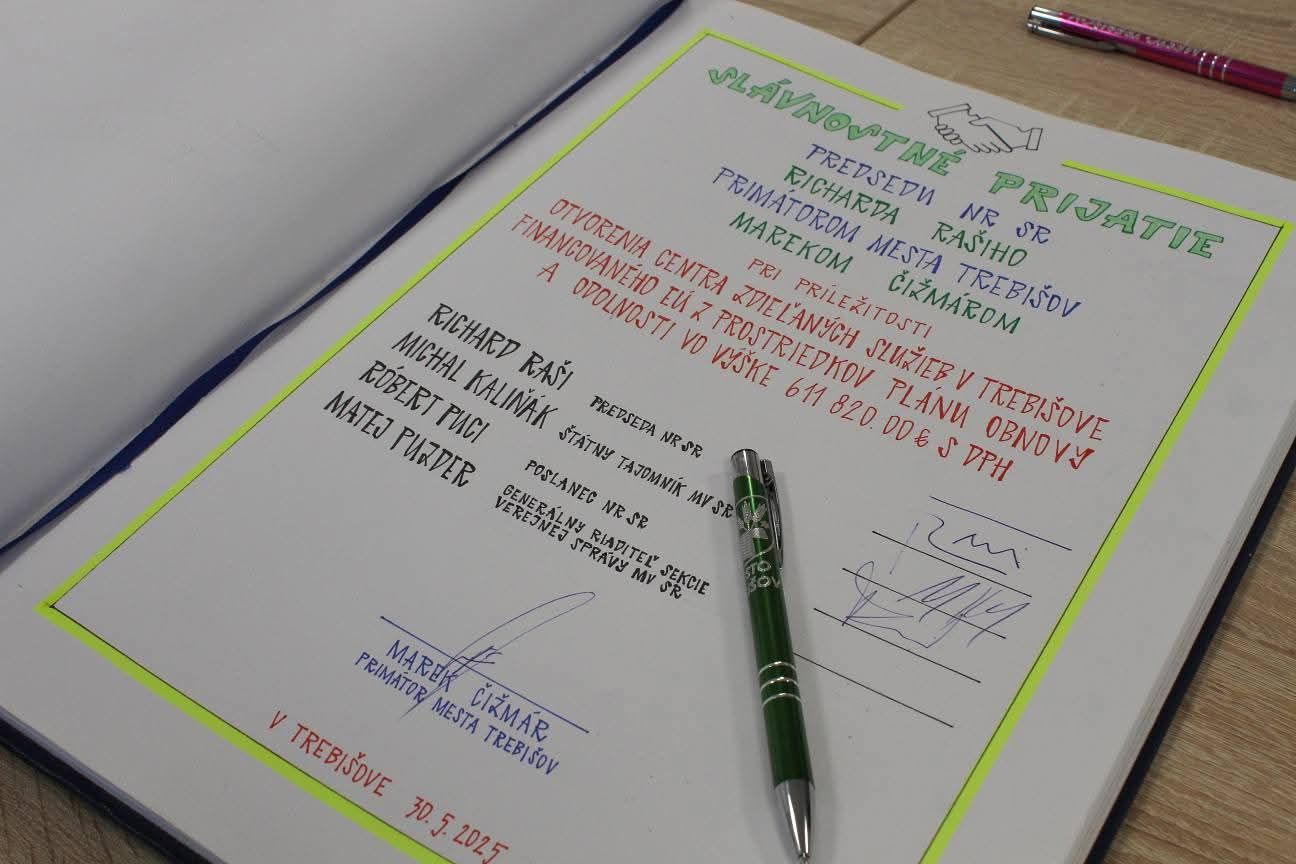 SLÁVNOSTNÉ PRIJATIE
PREDSEDU NR SR
RICHARDA RAŠIHO
PRIMÁTOROM MESTA TREBIŠOV
MAREKOM ČIŽMÁROM
PRI PRÍLEŽITOSTI
OTVORENIA CENTRA ZDIEĽANÝCH SLUŽIEB V TREBIŠOVE
FINANCOVANÉHO EÚ Z PROSTRIEDKOV PLÁNU OBNOVY
A ODOLNOSTI VO VÝŠKE 611 820.00 € S DPH
RICHARD RAŠI PREDSEDA NR SR
MICHAL KALIŇÁK ŠTÁTNY TAJOMNÍK MV SR
RÓBERT PUCI POSLANEC NR SR
MATEJ PUJDER GENERÁLNY RIADITEĽ SEKCIE
VEREJNEJ SPRÁVY MV SR
MAREK ČIŽMÁR
PRIMÁTOR MESTA TREBIŠOV
V TREBIŠOVE 30.5.2025